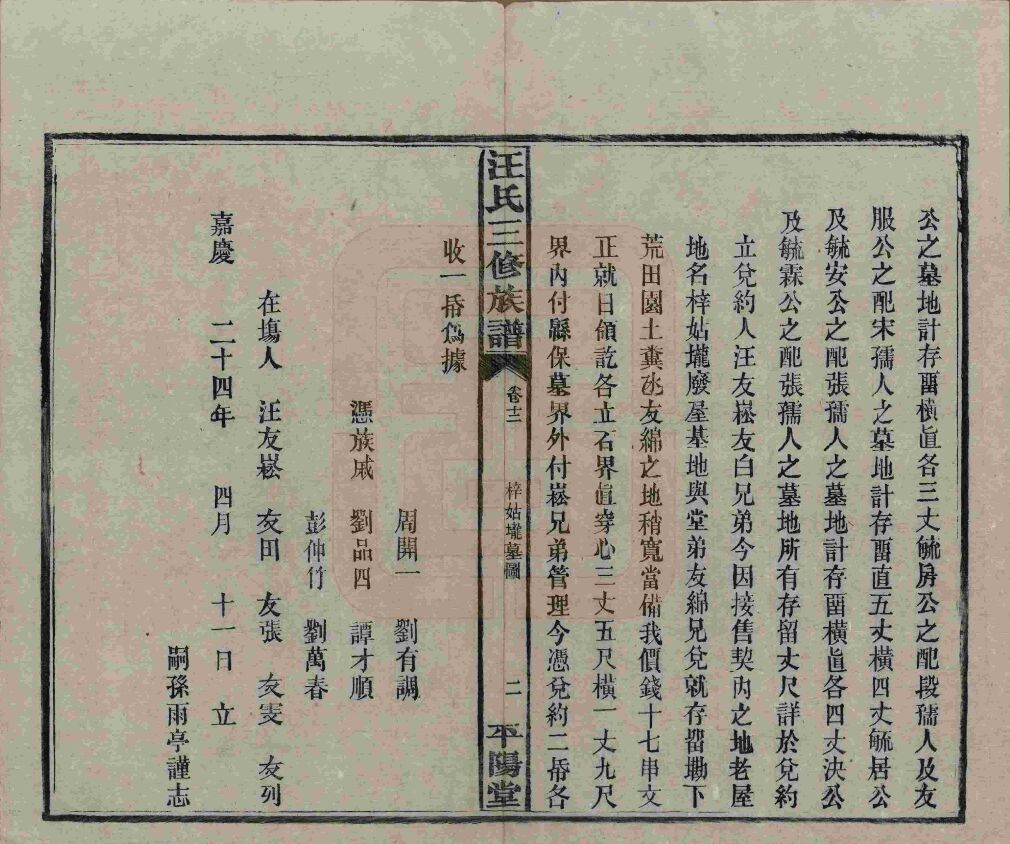 公之墓地計存畱橫直各三丈毓房公之配段孺人及友
服公之配宋孺人之墓地計存畱直五丈橫四丈毓居公
及毓安公之配張孺人之墓地計存畱橫直各四丈決公
及毓霖公之配張孺人之墓地所有存留丈尺詳於兌約
立兌約人汪友崧友白兄弟今因接售契內之地老屋
地名梓姑壠廢屋基地與堂弟友綿兄兌就存畱墈下
荒田園土糞氹友綿之地稍寬當備我價錢十七串文
正就日領訖各立石界直穿心三丈五尺橫一丈九尺
界內付縣保墓界外付崧兄弟管理今憑兌約二帋各
收一帋爲據
周開一 劉有調
憑族戚 劉品四 譚才順
彭仲竹 劉萬春
在塲人 汪友崧 友田 友張 友雯 友列
嘉慶 二十四年 四月 十一日 立
嗣孫雨亭謹志
汪氏三修族譜 卷十二 梓姑壠墓圖 二 平陽堂